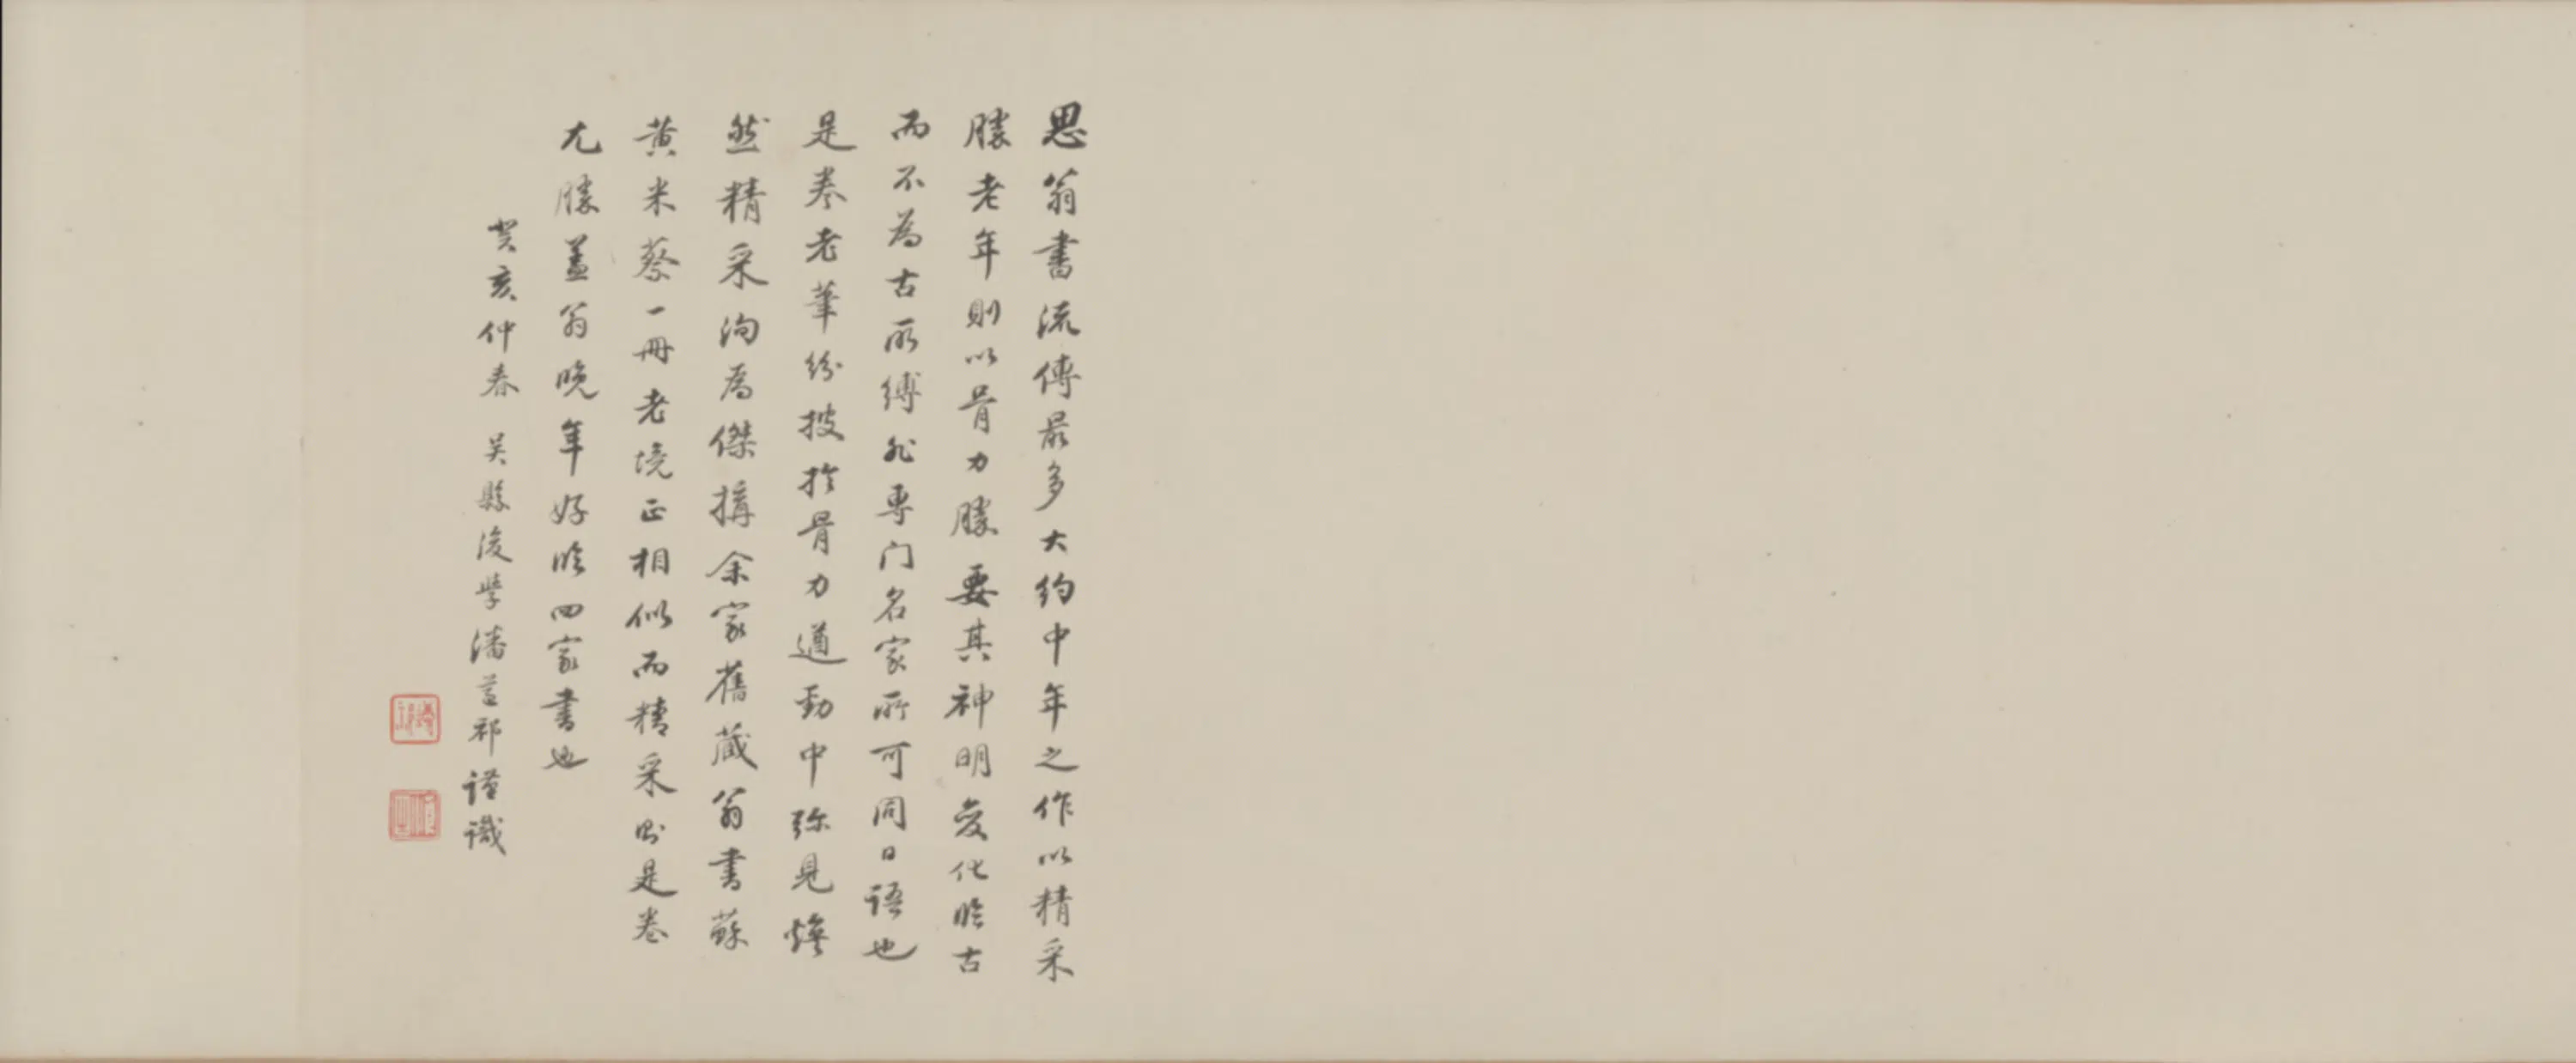 思翁書流傳最多大約中年之作以精采
勝老年則以骨力勝要其神明變化臨古
而不為古所縛非專門名家所可同日語也
是卷老筆紛披於骨力遒勁中弥見煥
然精采洵為傑搆余家舊藏翁書蘇
黃米蔡一冊老境正相似而精采則是卷
尤勝蓋翁晚年好臨四家書也
癸亥仲春 吳縣後學潘 祁謹識